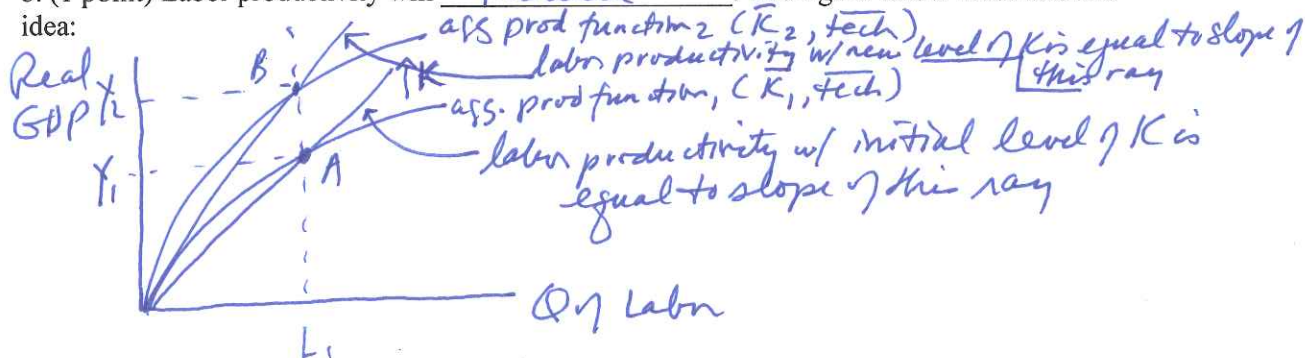 (1 point) Labor productivity will
idea:
agg prod function 2 (K̄2, tech)
labor productivity w/ new level of K is equal to slope of
this ray
Real
GDP
Y2
B
↑K
agg. prod function, (K̄1, tech)
labor productivity w/ initial level of K is
equal to slope of this ray
Y1
A
Q of Labor
L1